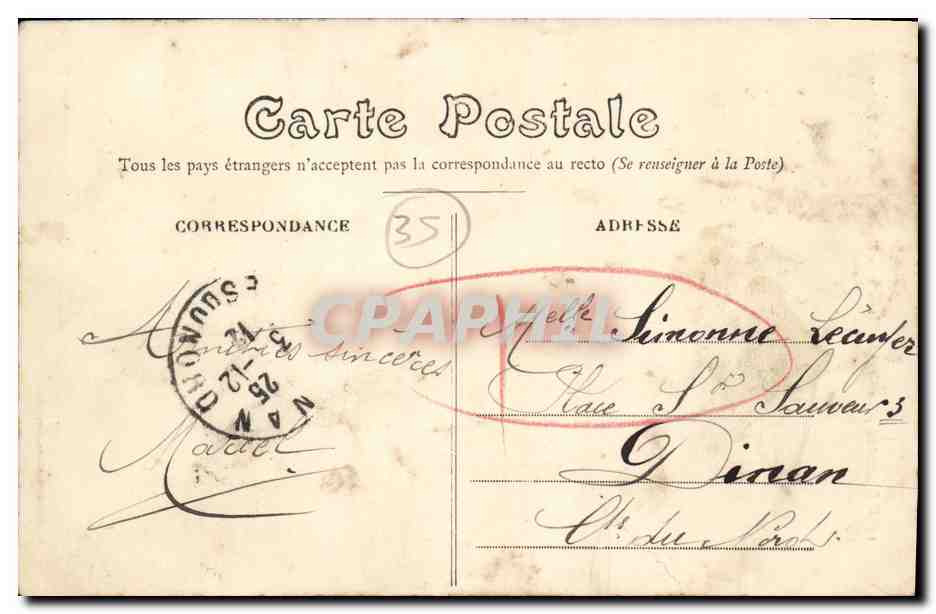 Carte Postale
Tous les pays étrangers n'acceptent pas la correspondance au recto (Se renseigner à la Poste)
CORRESPONDANCE
35
ADRESSE
CPAPHIL
Amitiés sincères
Marcel
25-12
Melle Simonne
Place St Sauveur 3
Dinan
Cts du Nord